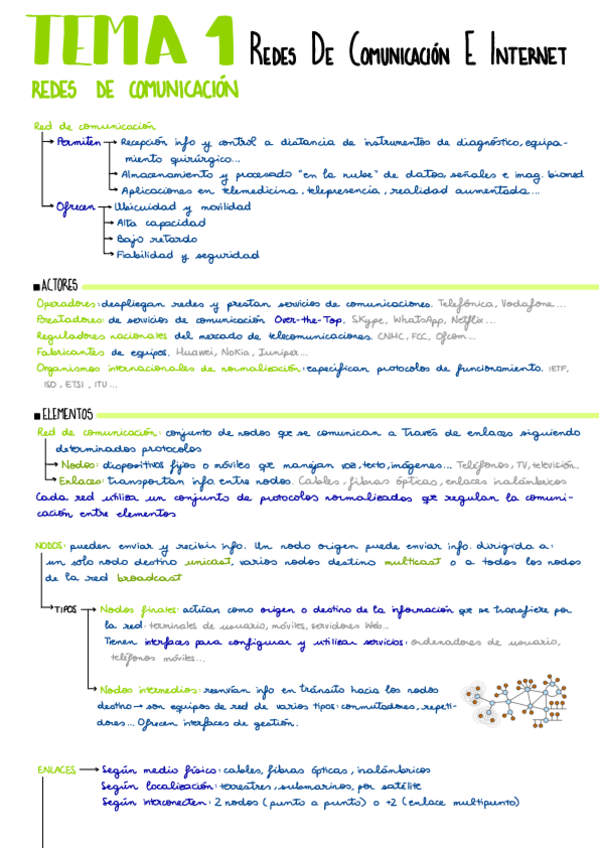 TEMA 1 REDES DE COMUNICACIÓN E INTERNET
REDES DE COMUNICACIÓN
Red de comunicación
Permiten → Recepción info y control a distancia de instrumentos de diagnóstico, equipa-
miento quirúrgico...
Almacenamiento y procesado "en la nube" de datos, señales e imag. biomed
Aplicaciones en telemedicina, telepresencia, realidad aumentada...
Ofrecen → Ubicuidad y movilidad
Alta capacidad
Bajo retardo
Fiabilidad y seguridad
■ ACTORES
Operadores: despliegan redes y prestan servicios de comunicaciones. Telefónica, Vodafone...
Prestadores: de servicios de comunicación Over-the-Top. Skype, WhatsApp, Netflix...
Reguladores nacionales del mercado de telecomunicaciones. CNMC, FCC, Ofcom...
Fabricantes de equipos. Huawei, Nokia, Juniper...
Organismos internacionales de normalización: especifican protocolos de funcionamiento. IETF,
ISO, ETSI, ITU...
■ ELEMENTOS
Red de comunicación: conjunto de nodos que se comunican a través de enlaces siguiendo
determinados protocolos
Nodos: dispositivos fijos o móviles que manejan voz, texto, imágenes... Teléfonos, TV, televisión...
Enlaces: transportan info entre nodos. Cables, fibras ópticas, enlaces inalámbricos
Cada red utiliza un conjunto de protocolos normalizados que regulan la comuni-
cación entre elementos
NODOS: pueden enviar y recibir info. Un nodo origen puede enviar info. dirigida a:
un solo nodo destino unicast, varios nodos destino multicast o a todos los nodos
de la red broadcast
TIPOS → Nodos finales: actúan como origen o destino de la información que se transfiere por
la red: terminales de usuario, móviles, servidores Web...
Tienen interfaces para configurar y utilizar servicios: ordenadores de usuario,
teléfonos móviles...
Nodos intermedios: reenvían info en tránsito hacia los nodos
destino → son equipos de red de varios tipos: conmutadores, repeti-
dores... Ofrecen interfaces de gestión.
ENLACES → Según medio físico: cables, fibras ópticas, inalámbricos
Según localización: terrestres, submarinos, por satélite
Según interconecten: 2 nodos (punto a punto) o +2 (enlace multipunto)